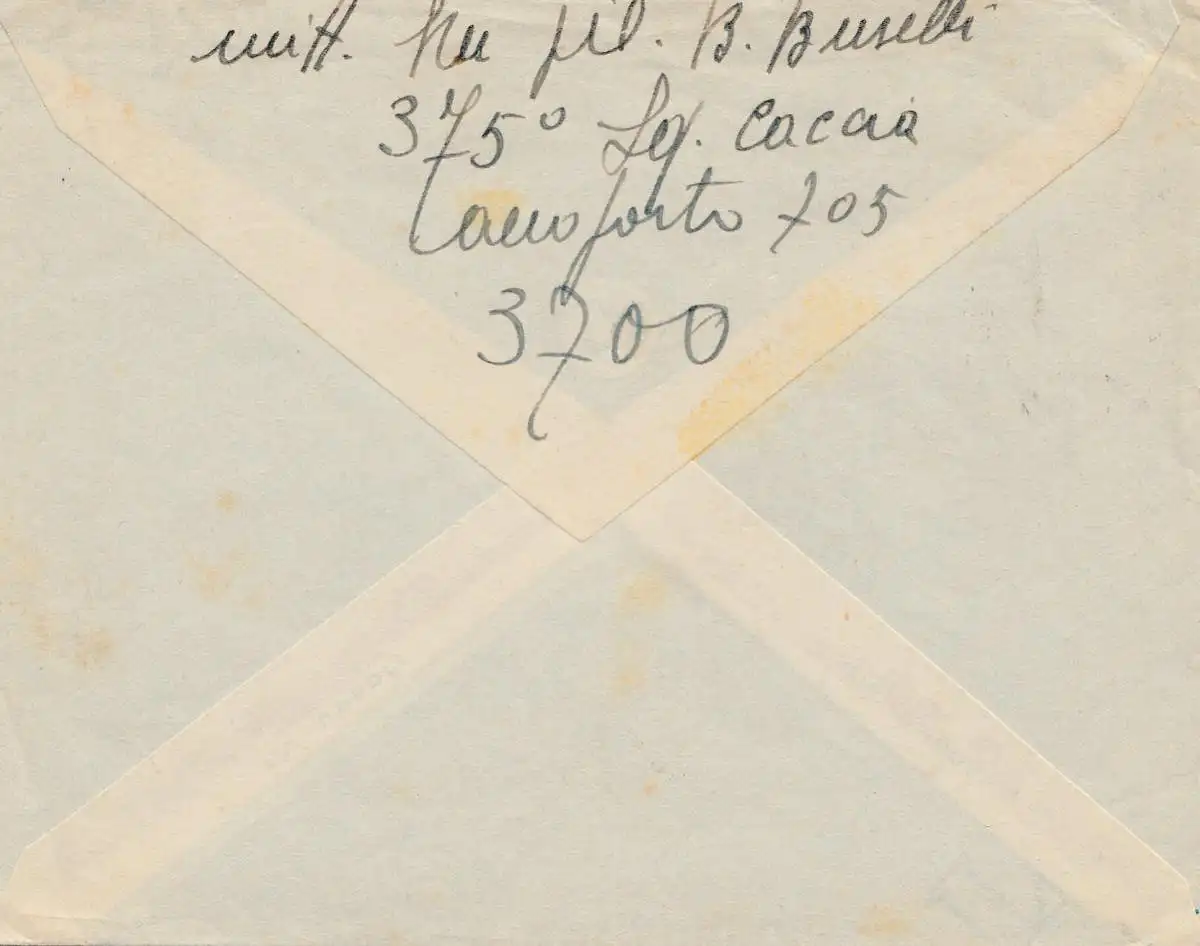 mitt. Ser pil. B. Buselli
375° Sq. Caccia
Aeroporto 705
3700